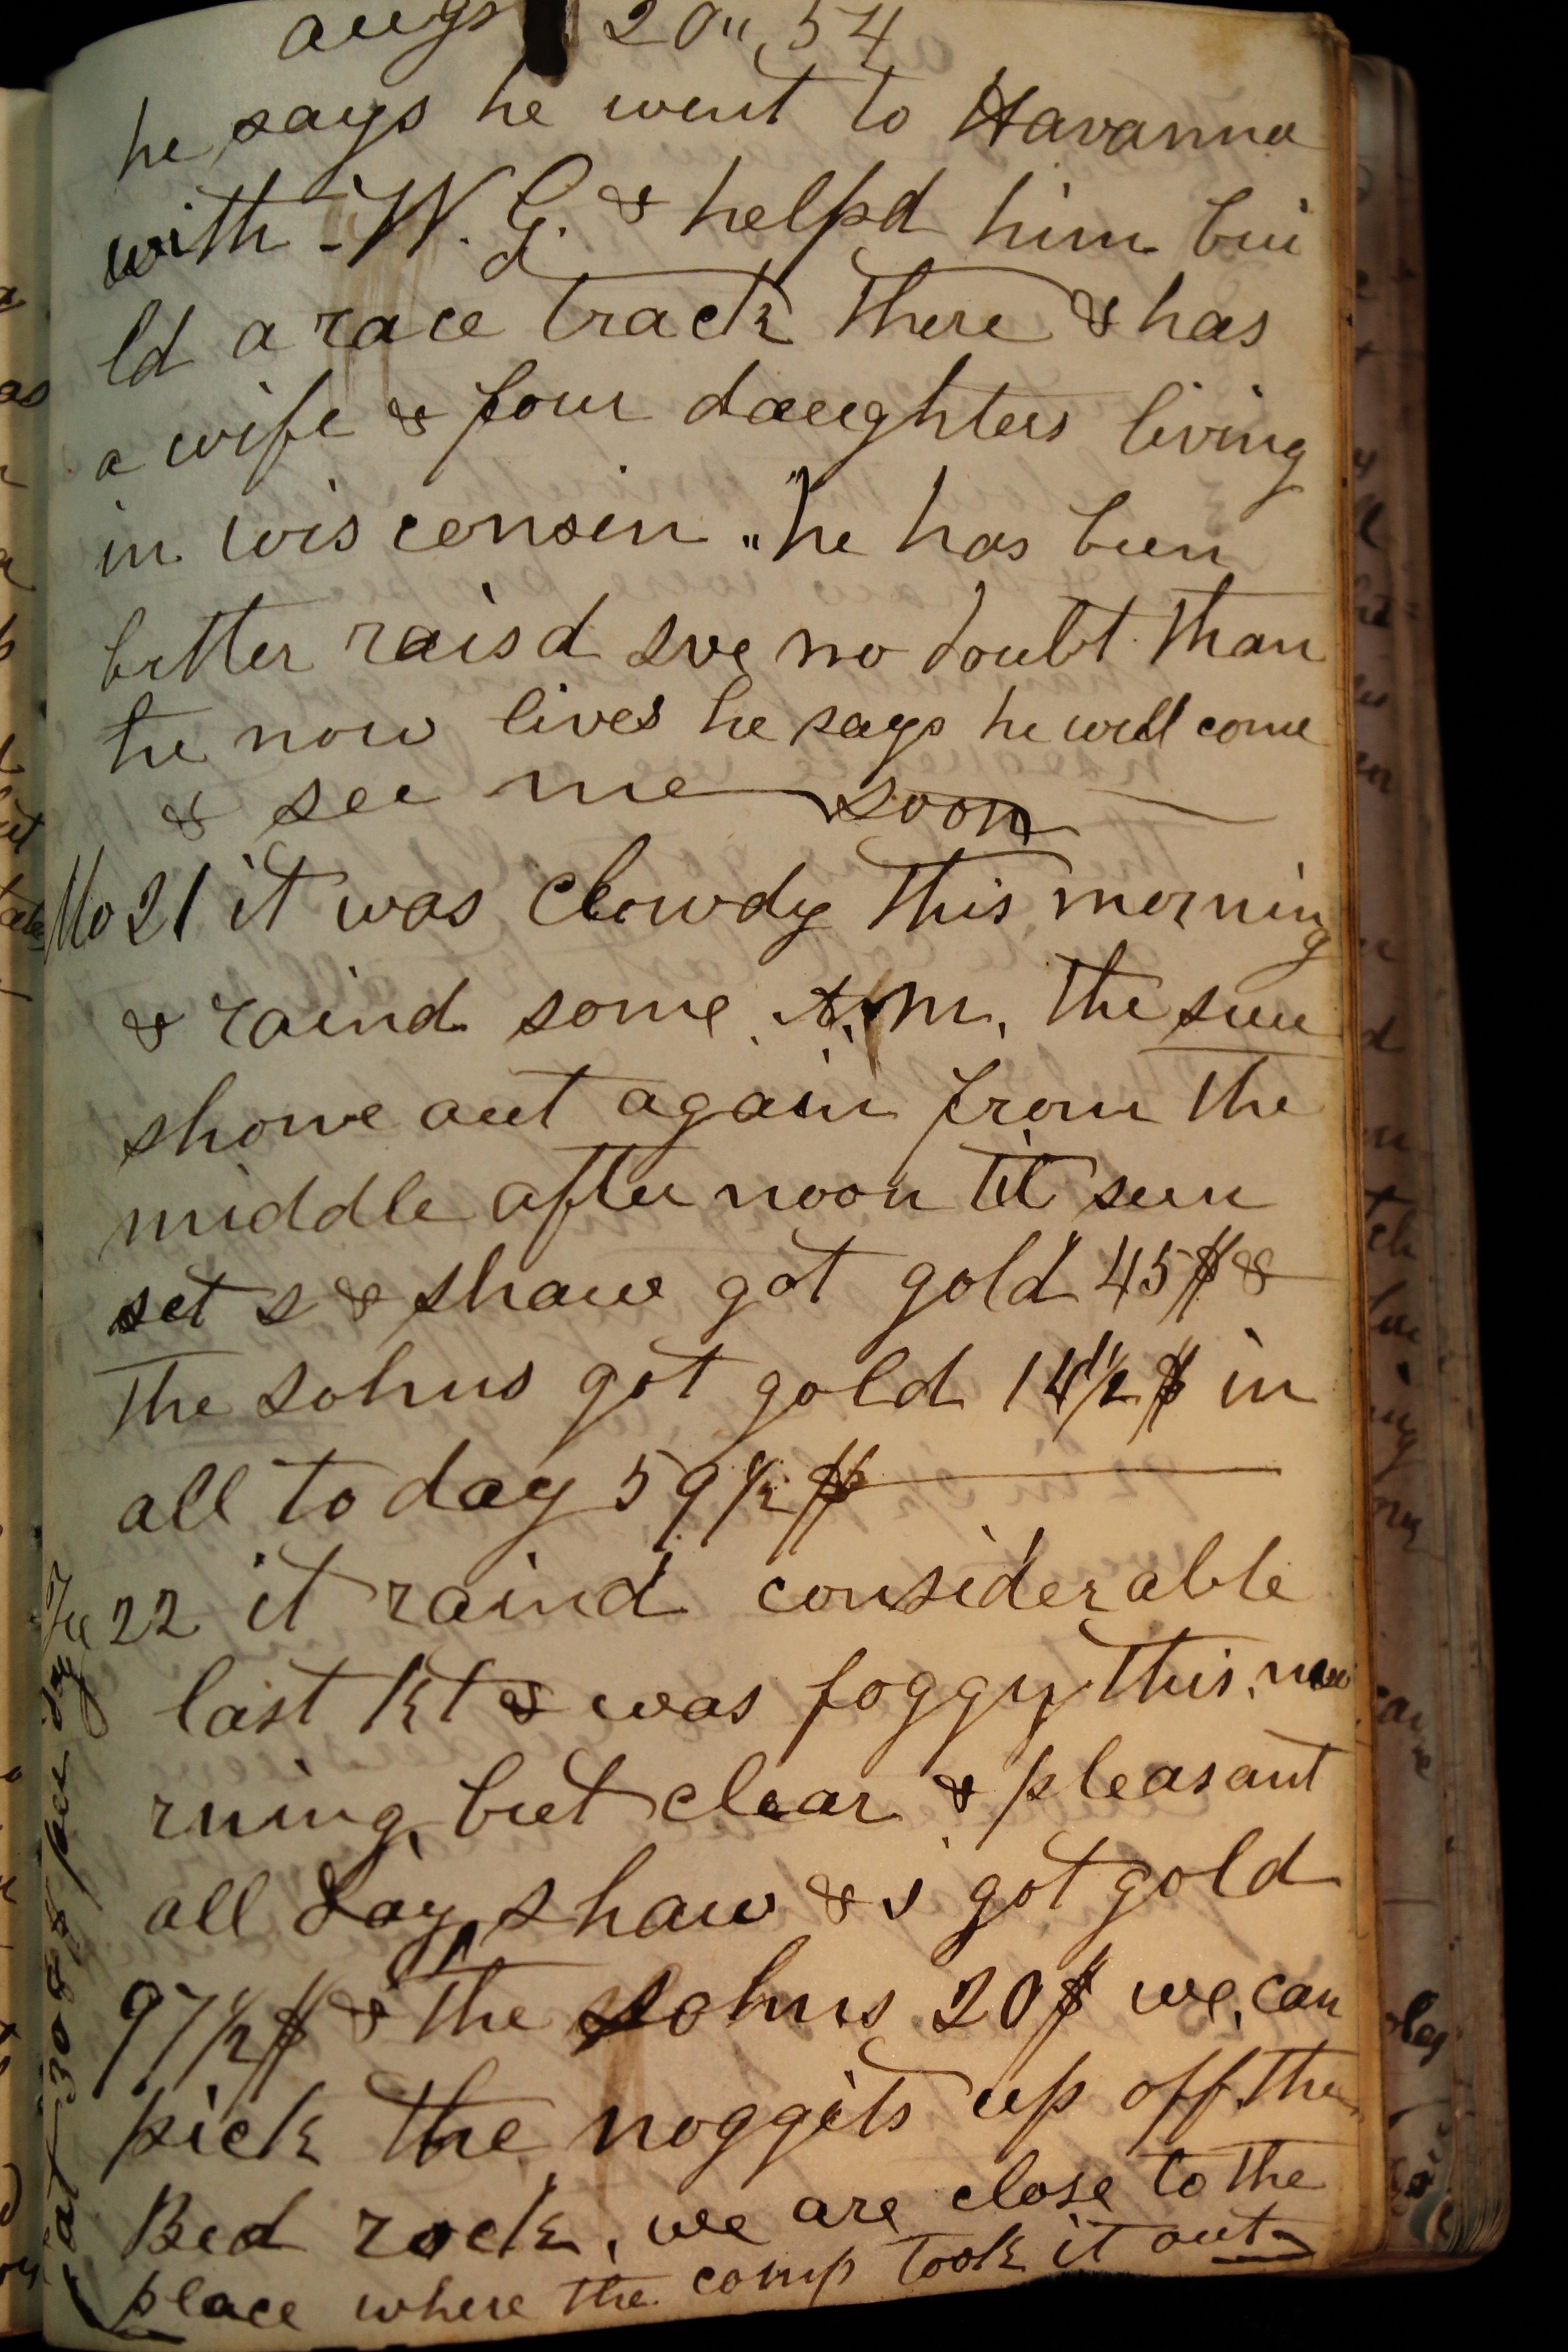 augs 20", 54
he says he went to Havanna
with W. G. & helpd him bui
ld a race track there & has
a wife & four daughters living
in wisconsin "he has been
better raisd Ive no doubt than
he now lives he says he will come
& see me soon
Mo 21 it was clowdy this morning
& raind some A.M. the sun
shone out again from the
middle after noon til sun
set I & shaw got gold 45$ &
the Johns got gold 14 1/2 $ in
all to day 59 1/2 $
22 it raind considerable
last Kt & was foggy this mo
rning, but clear & pleasant
all day, shaw & I got gold
97 1/2 $ & the Johns 20$ we can
pick the noggets up off the
Bed rock, we are close to the
place where the comp took it out
at 308$ per day